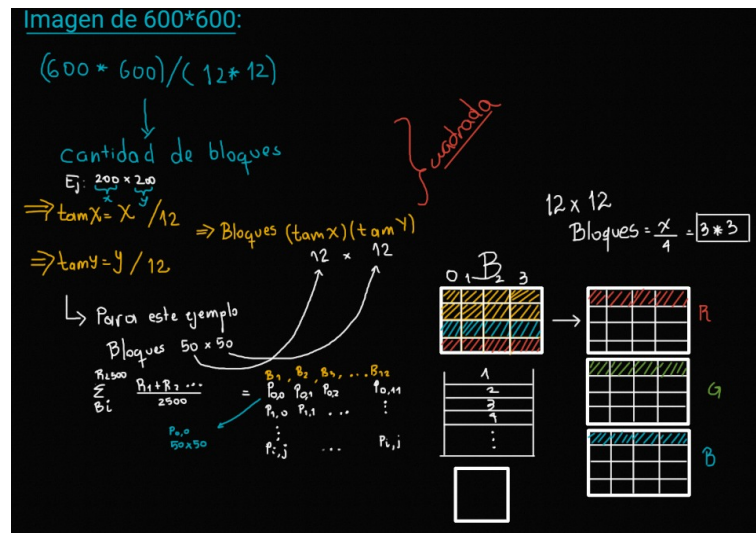 Imagen de 600*600:
(600 * 600)/( 12* 12)
cantidad de bloques
Ej: 200 x 200
x y
⇒ tamX = X /12
⇒ Bloques (tamX)(tamY)
12 x 12
⇒ tamy = y / 12
cuadrada
↳ Para este ejemplo
Bloques 50 x 50
R2500
Σ R1+R2 ... / 2500 =
Bi
B1, B2, B3, ... B12
P0,0 P0,1 P0,2 P0,11
P1,0 P1,1 ... ⋮
⋮
Pi,j ... Pi,j
P0,0
50x50
12 x 12
Bloques = x/4 = 3 * 3
B
0 1 2 3
1
2
3
4
⋮
R
G
B